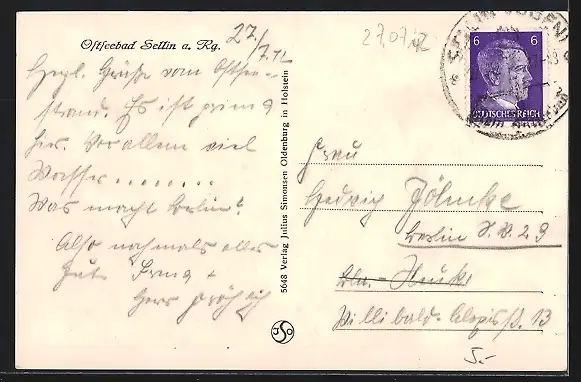 Ostseebad Sellin a. Rg.
27/7.42
27.07.42
Hrzl. Grüße vom Ostsee-
strand. Es ist prima
hier. Vor allem viel
Wasser ........
Was macht Berlin?
Also nochmals alles
Gute
5648 Verlag Julius Simonsen Oldenburg in Holstein
JSO
6 6
DEUTSCHES REICH
Frau
Hedwig
Berlin 29
Bln.-
Willibald-Alexisstr. 13
5.-